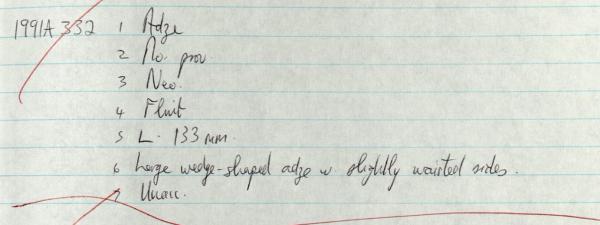 1991A 332 1 Adze
2 No. prov.
3 Neo.
4 Flint
5 L. 133 mm.
6 Large wedge-shaped adze w slightly waisted sides.
7 Unacc.